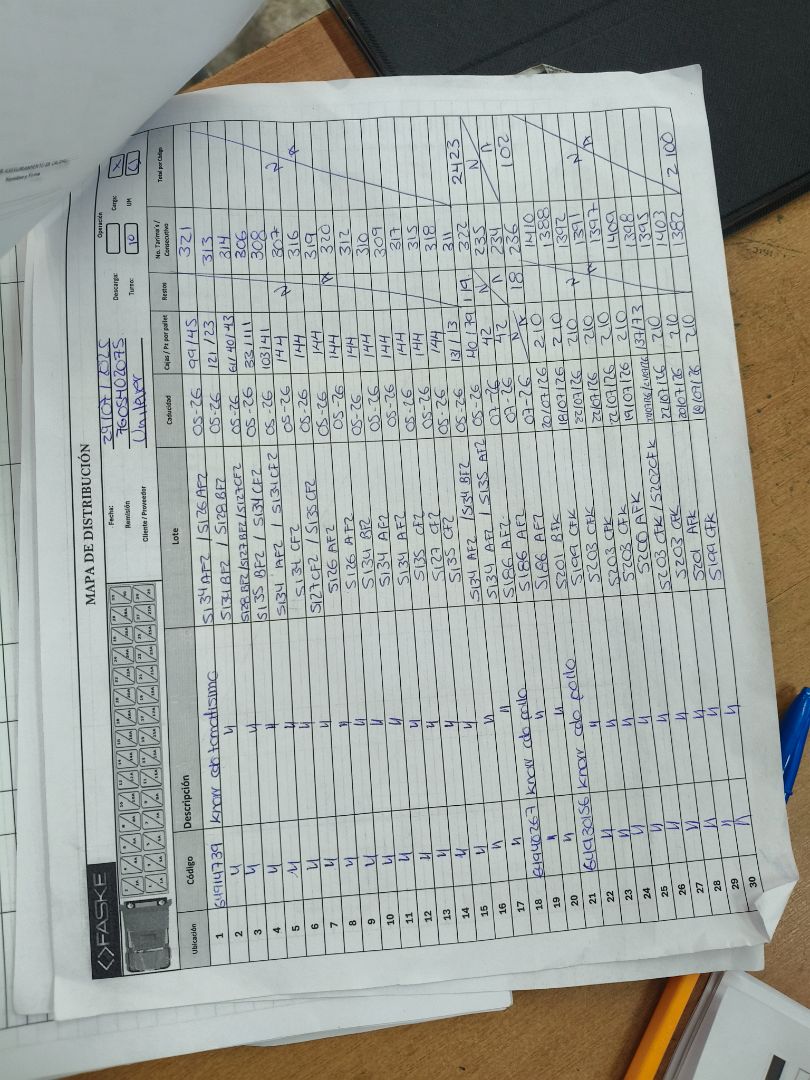 <>FASKE
MAPA DE DISTRIBUCIÓN
Fecha: 24/07/2025
Remisión 7605402075
Cliente / Proveedor Unilever
Operación
Descarga: Carga: X
Turno: 10 UM
Ubicación Código Descripción Lote Caducidad Cajas / Pz por pallet Restos No. Tarima's / Consecutivo Total por Código
1 61914739 knorr cdo tomatisimo S134 AF2 / S126 AF2 05-26 99/45 321
2 " " S131 BF2 / S128 BF2 05-26 121/23 313
3 " " S128 BF2/S127 BF2/S127CF2 05-26 61/40/43 314
4 " " S135 BF2 / S131 CF2 05-26 33/111 306
5 " " S134 AF2 / S131 CF2 05-26 103/41 308
6 " " S131 CF2 05-26 144 307
7 " " S127 CF2 / S135 CF2 05-26 144 316
8 " " S126 AF2 05-26 144 319
9 " " S126 AF2 05-26 144 320
10 " " S134 BF2 05-26 144 312
11 " " S134 AF2 05-26 144 310
12 " " S134 AF2 05-26 144 309
13 " " S135 CF2 05-26 144 317
14 " " S127 CF2 05-26 144 315
15 " " S135 CF2 05-26 144 318
16 " " S134 AF2 / S134 BF2 05-26 131/13 311
17 " " S134 AF2 / S135 AF2 05-26 40/79 19 322 2423
18 61940267 knorr cdo pollo S186 AF2 07-26 42 235
19 " " S186 AF2 07-26 42 234
20 " " S186 AF2 07-26 NA 18 236 102
21 64930156 knorr cdo pollo S201 BFK 20/07/26 210 1410
22 " " S199 CFK 18/07/26 210 1388
23 " " S203 CFK 22/07/26 210 1392
24 " " S203 CFK 22/07/26 210 1391
25 " " S203 CFK 22/07/26 210 1397
26 " " S200 AFK 19/07/26 210 1409
27 " " S203 CFK / S202CFK 22/07/26/21/07/26 137/73 1398
28 " " S203 CFK 22/07/26 210 1395
29 " " S201 AFK 20/07/26 210 1403
30 " " S199 CFK 18/07/26 210 1382 2100